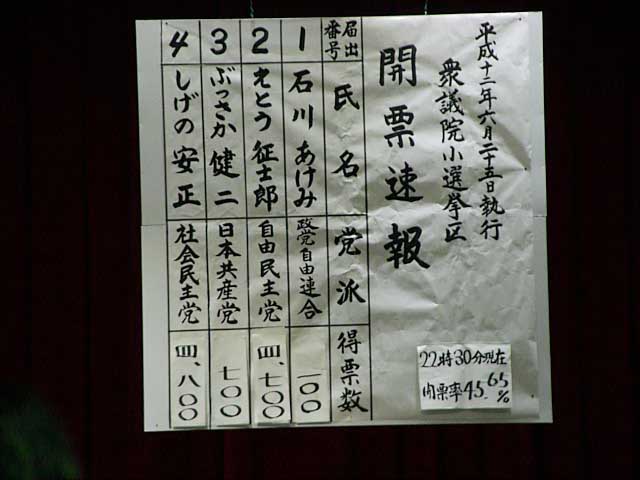 平成十二年六月二十五日執行
衆議院小選挙区
開票速報
届出番号 氏名 党派 得票数
1 石川 あけみ 政党自由連合 一〇〇
2 えとう 征士郎 自由民主党 四、七〇〇
3 ぶっさか 健二 日本共産党 七〇〇
4 しげの 安正 社会民主党 四、八〇〇
22時30分現在
開票率45.65%